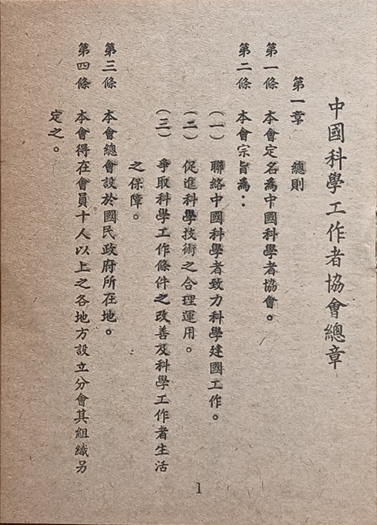 中國科學工作者協會總章
第一章　總則
第一條　本會定名為中國科學者協會。
第二條　本會宗旨為：
（一）聯絡中國科學者致力科學建國工作。
（二）促進科學技術之合理運用。
（三）爭取科學工作條件之改善及科學工作者生活
之保障。
第三條　本會總會設於國民政府所在地。
第四條　本會得在會員十人以上之各地方設立分會其組織另
定之。
1